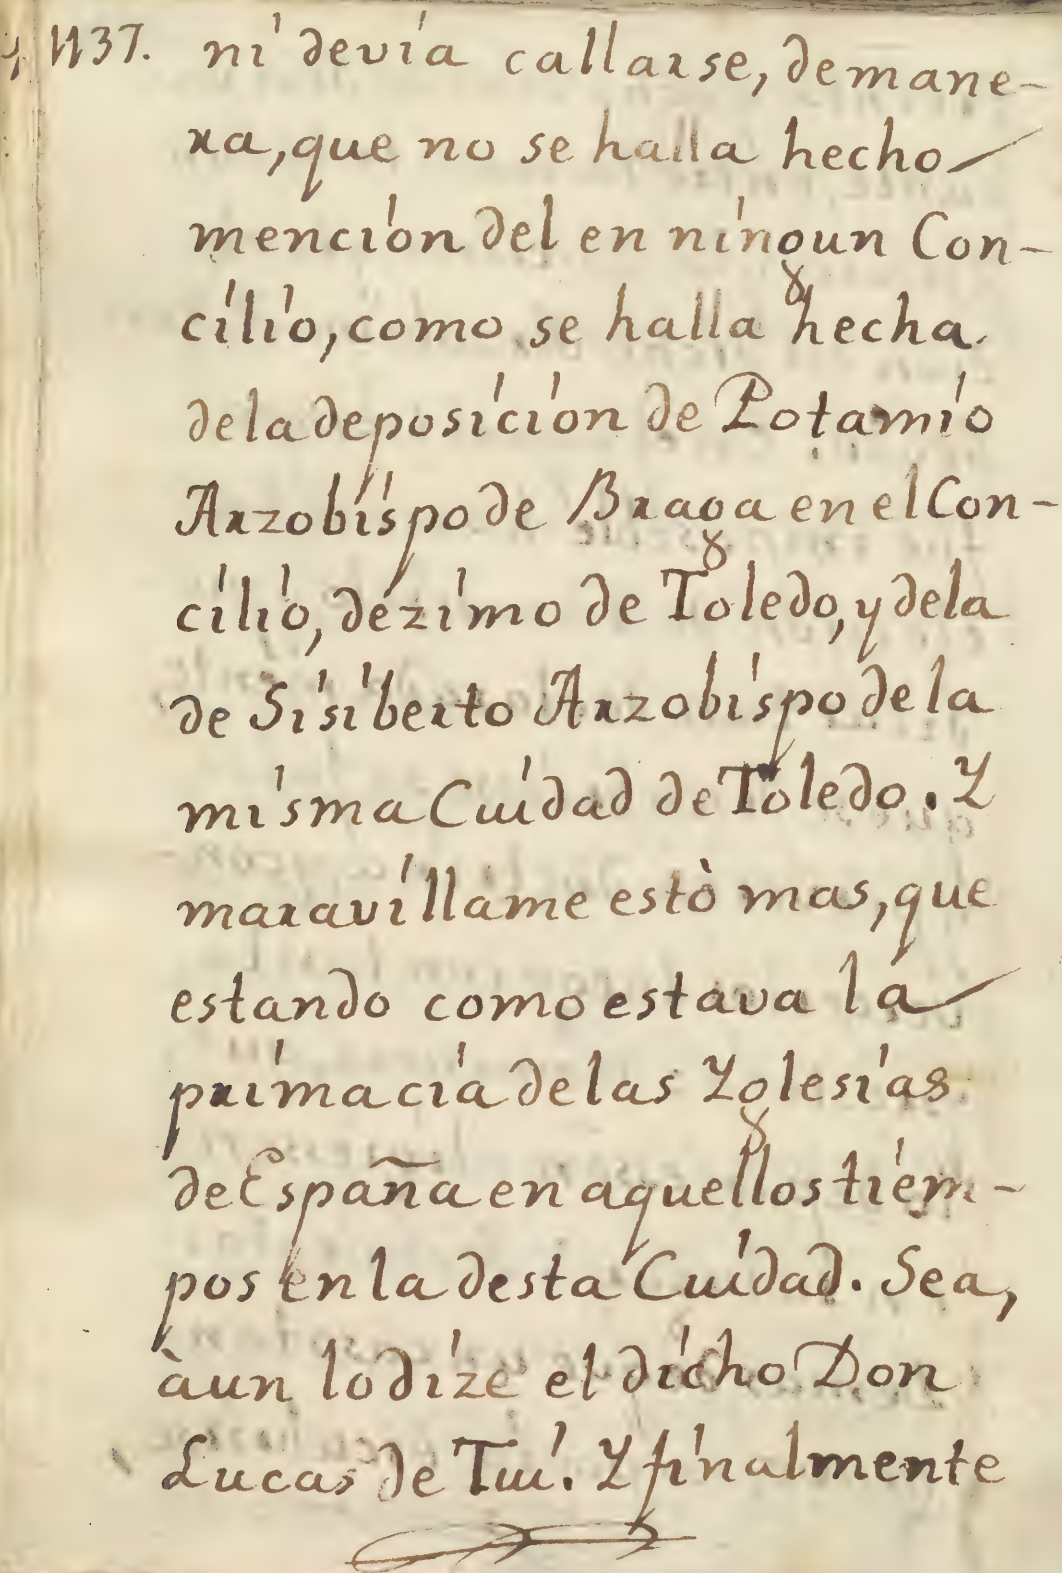 1137. ni devia callarse, demane-
ra, que no se halla hecho
mención del en ningun Con-
cilio, como se halla hecha
de la deposición de Potamio
Arzobispo de Braga en el Con-
cilio, dézimo de Toledo, y de la
de Sisiberto Arzobispo de la
misma Cuidad de Toledo. Y
maravillame estò mas, que
estando como estava la
primacia de las Yglesias
de España en aquellos tiem-
pos en la desta Cuidad. Sea,
àun lo dize el dicho Don
Lucas de Tui. Y finalmente